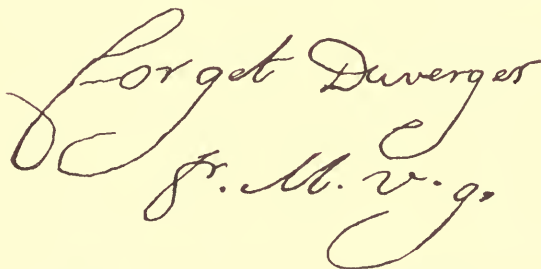 forget Duverger
p. M. v. g.